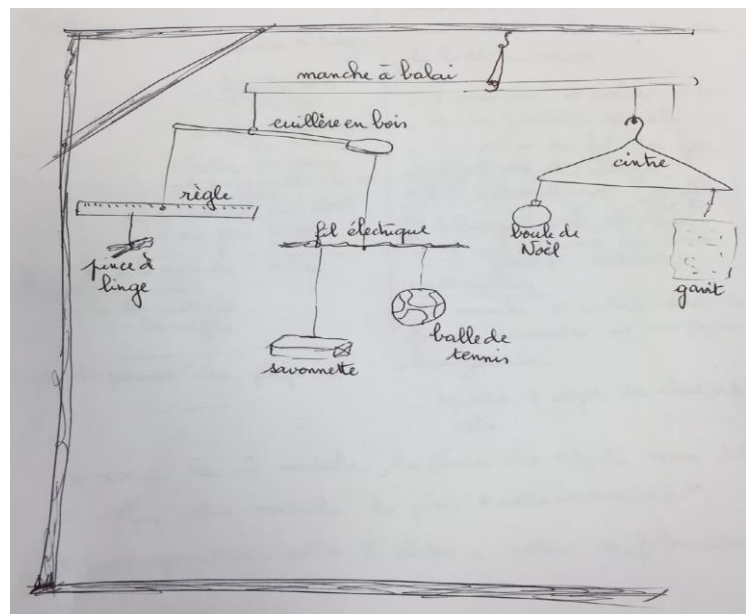 manche à balai
cuillère en bois
cintre
règle
fil électrique
boule de
Noël
pince à
linge
gant
balle de
tennis
savonnette